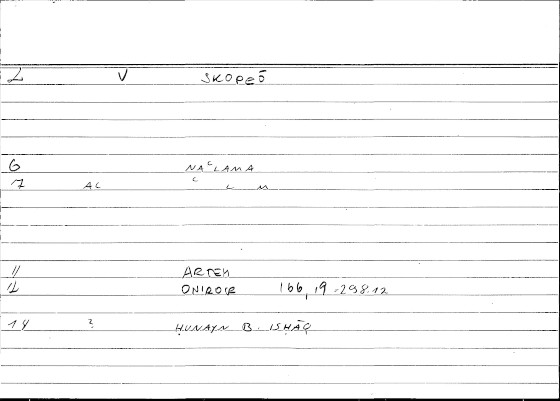 2 V SKOPEŌ
6 NAʿLAMA
7 AL ʿ L M
11 ARTEM
12 ONIROCR 166,19-298.12
14 ? ḤUNAYN B. ISḤĀQ